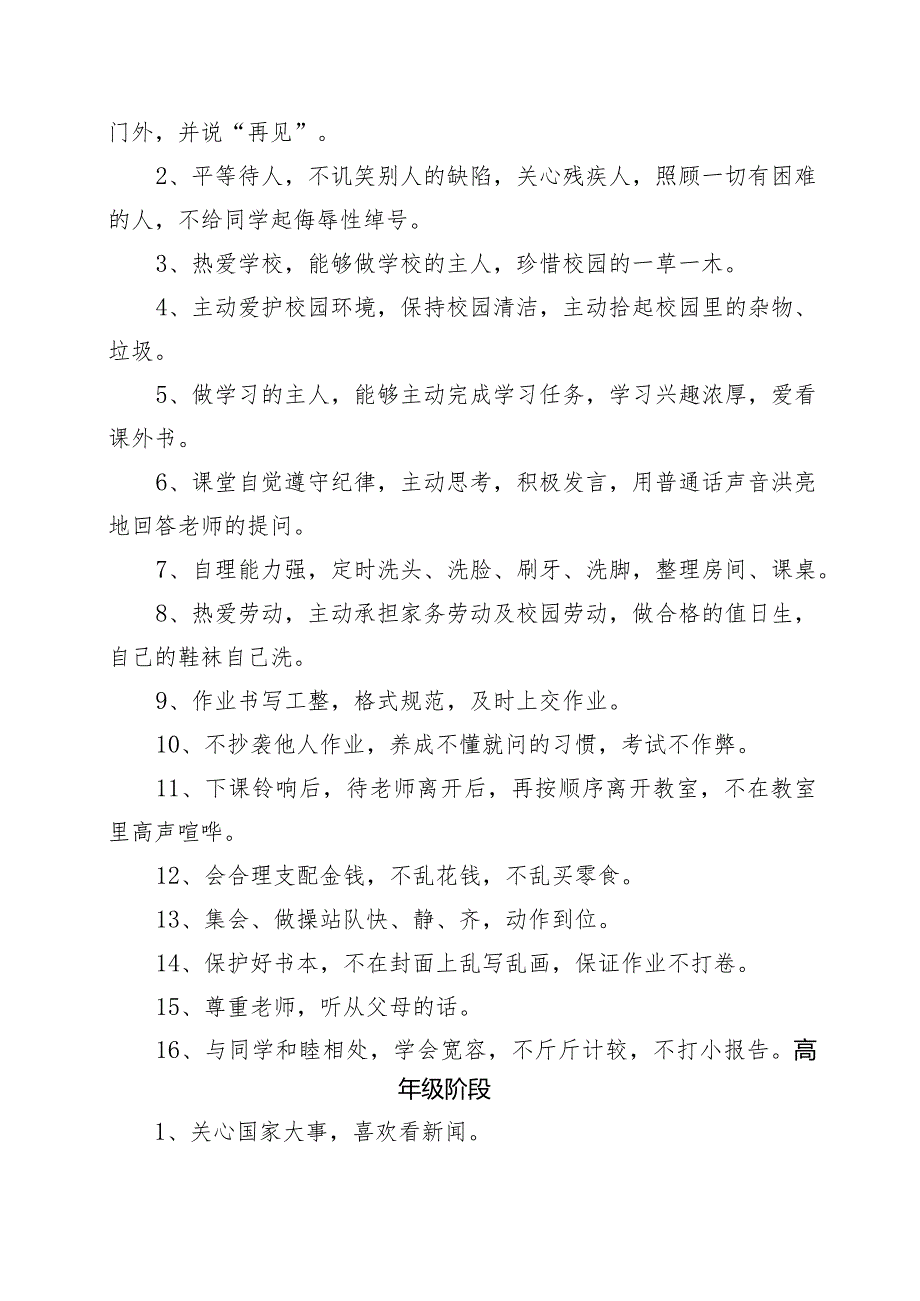 门外，并说“再见”。
2、平等待人，不讥笑别人的缺陷，关心残疾人，照顾一切有困难
的人，不给同学起侮辱性绰号。
3、热爱学校，能够做学校的主人，珍惜校园的一草一木。
4、主动爱护校园环境，保持校园清洁，主动拾起校园里的杂物、
垃圾。
5、做学习的主人，能够主动完成学习任务，学习兴趣浓厚，爱看
课外书。
6、课堂自觉遵守纪律，主动思考，积极发言，用普通话声音洪亮
地回答老师的提问。
7、自理能力强，定时洗头、洗脸、刷牙、洗脚，整理房间、课桌。
8、热爱劳动，主动承担家务劳动及校园劳动，做合格的值日生，
自己的鞋袜自己洗。
9、作业书写工整，格式规范，及时上交作业。
10、不抄袭他人作业，养成不懂就问的习惯，考试不作弊。
11、下课铃响后，待老师离开后，再按顺序离开教室，不在教室
里高声喧哗。
12、会合理支配金钱，不乱花钱，不乱买零食。
13、集会、做操站队快、静、齐，动作到位。
14、保护好书本，不在封面上乱写乱画，保证作业不打卷。
15、尊重老师，听从父母的话。
16、与同学和睦相处，学会宽容，不斤斤计较，不打小报告。高
年级阶段
1、关心国家大事，喜欢看新闻。